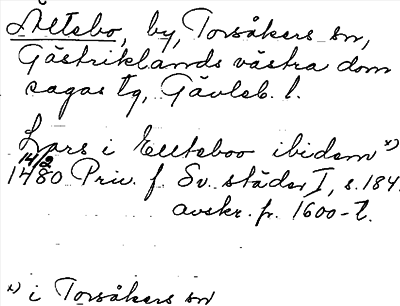 Ältebo, by, Torsåkers sn,
Gästriklands västra dom
sagas tg, Gävleb. l.
Lars i Elteboo ibidem x)
14/2
1480 Priv. f. Sv. städer I, s. 184.
avskr. fr. 1600-t.
x) i Torsåkers sn